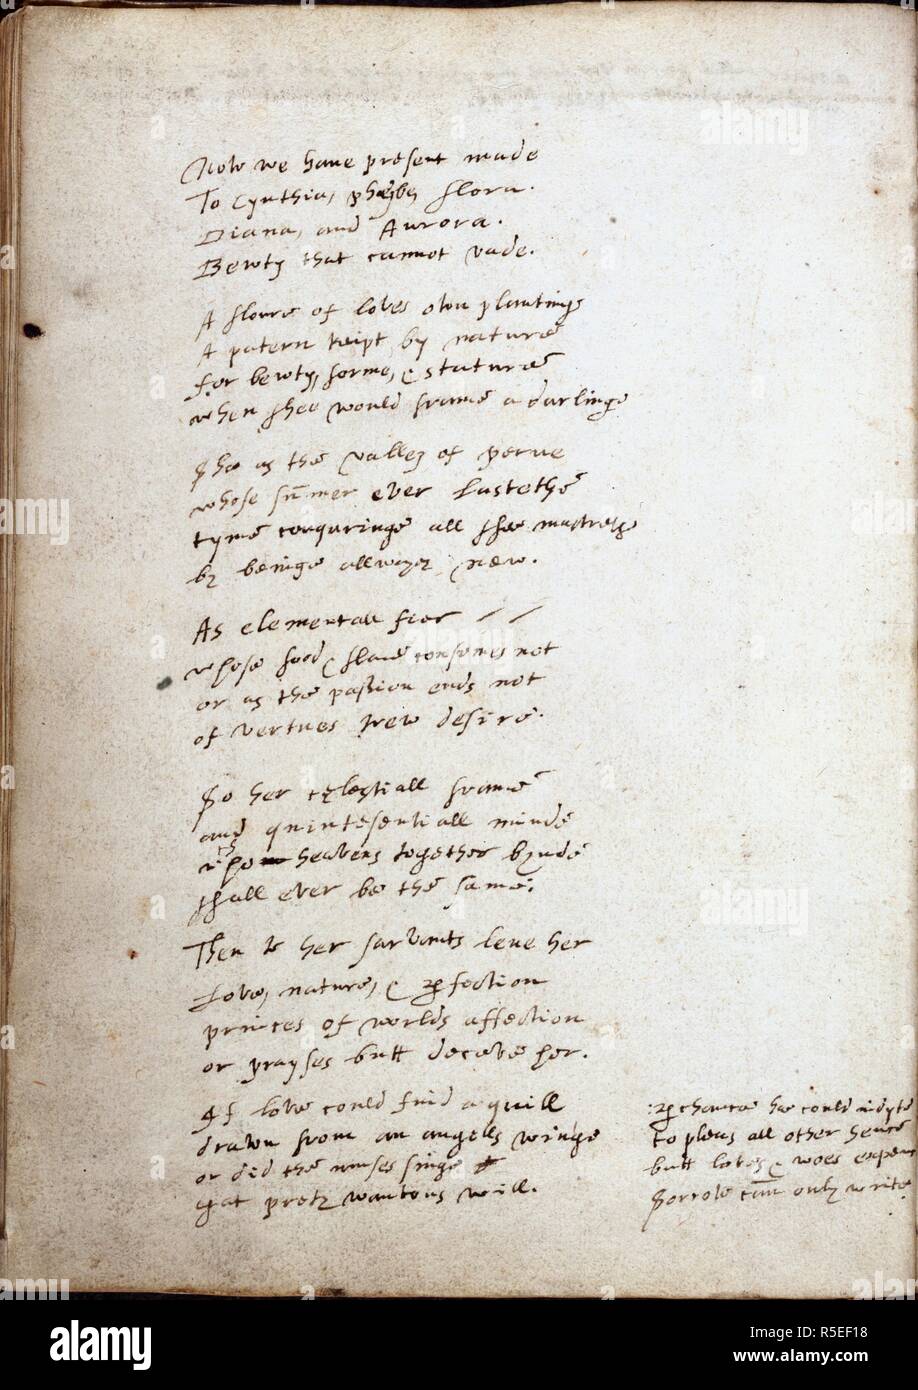 Now we have present made
To Cynthia, phebe, flora.
Diana, and Aurora.
Bewty that cannot vade.
A floure of loves own plantinge
A patern keipt by nature
for bewty, forme, & stature
when shee would frame a darlinge
She as the valley of perue
whose summer ever lastethe
tyme conquringe all shee mastreth
by beinge allwayes new.
As elementall fier
whose food & flame consumes not
or as the passion ends not
of vertues trew desire.
So her celestiall frame
and quintesentiall minde
which heavens together bynde
shall ever be the same.
Then to her sarvants leve her
Love, nature, & perfection
princes of worlds affection
or prayses butt deceve her.
If love could find a quill
drawn from an angells winge
or did the muses singe
that prety wantons will.
perchance he could indyte
to pleas all other sence
butt loves & woes expens
Sorrow can only write
alamy
Image ID: R5EF18
www.alamy.com